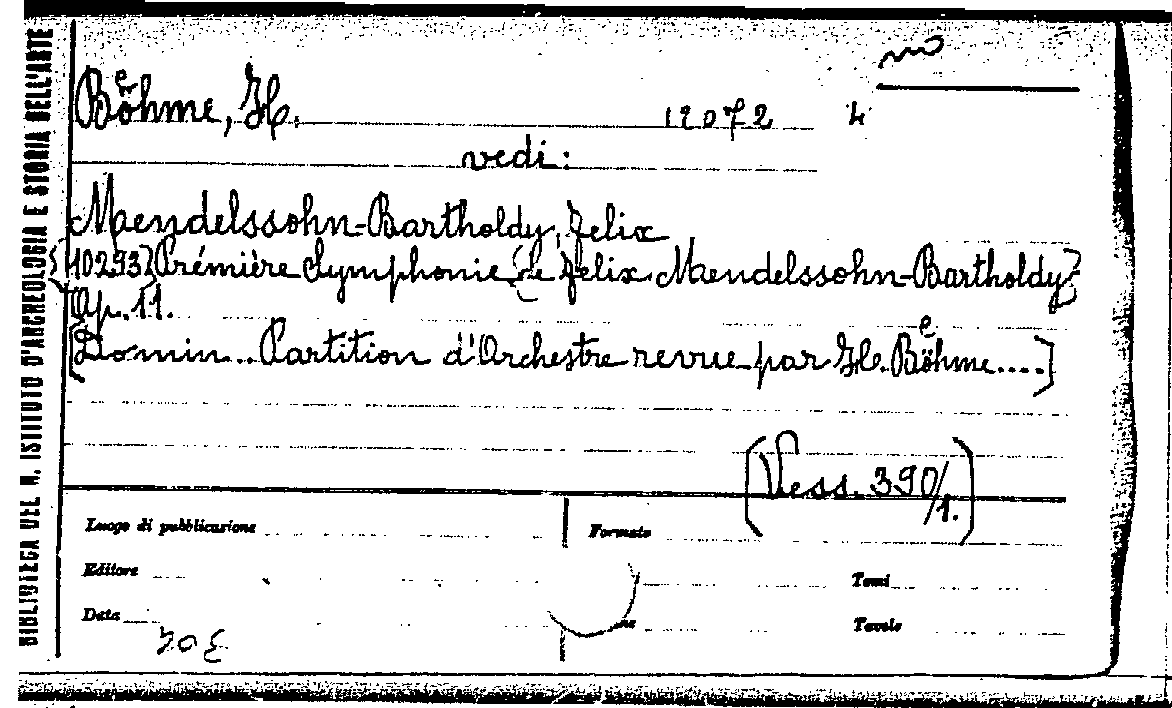 BIBLIOTECA DEL R. ISTITUTO D'ARCHEOLOGIA E STORIA DELL'ARTE
Böhme, H. 12072 4
vedi:
Maendelssohn-Bartholdy, Felix
10293} Prémière Symphonie {de Felix Maendelssohn-Bartholdy}
Op. 11.
[Domin.. Partition d'Orchestre revue par H. Böhme....]
(Vess. 390/1.)
Luogo di pubblicazione Formato
Editore Tomi
Data Tavole